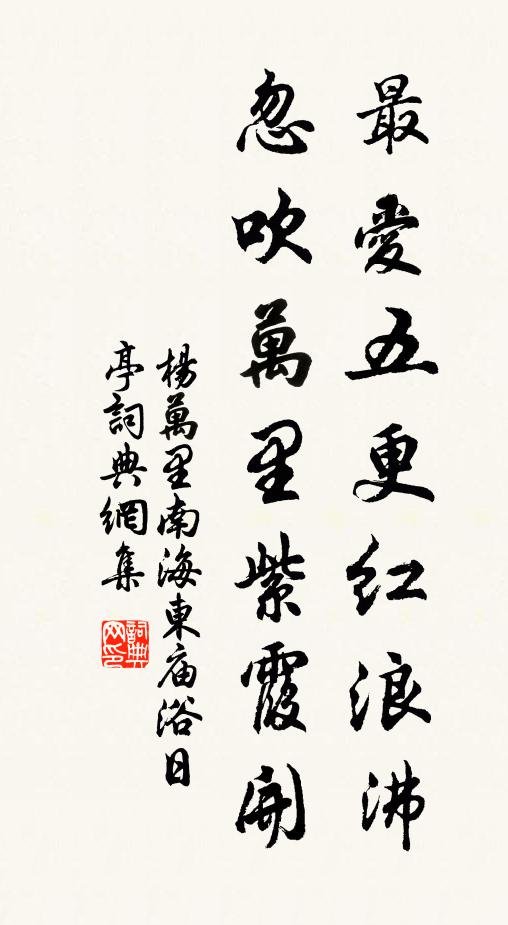 最愛五更紅浪沸
忽吹萬里紫霞開
楊萬里南海東庙浴日
亭詞典網集
詞典
网印